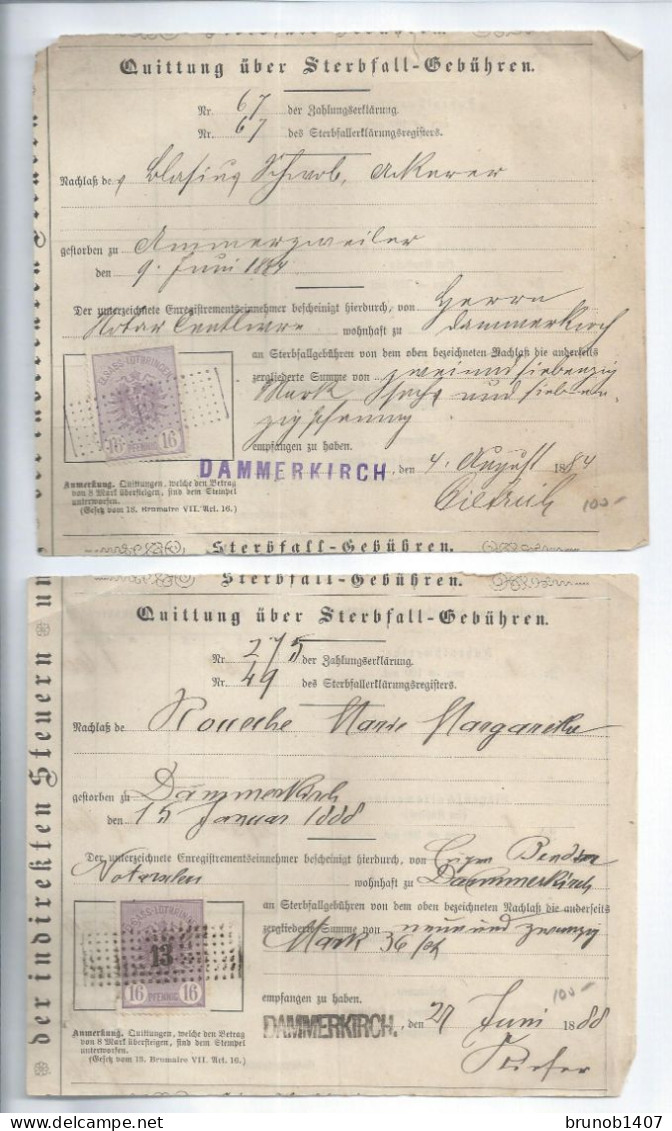 Quittung über Sterbfall-Gebühren.
Nr. 67 der Zahlungserklärung.
Nr. 67 des Sterbfallerklärungsregisters.
Nachlaß de Blasius Schwob, Ackerer
gestorben zu Ammerzweiler
den 9. Juni 1884
Der unterzeichnete Enregistrementseinnehmer bescheinigt hierdurch, von Herrn
Notar Centlivre wohnhaft zu Dammerkirch
an Sterbfallgebühren von dem oben bezeichneten Nachlaß die anderseits
zergliederte Summe von zweiundsiebenzig
Mark sechs und sieben
zig Pfennig
empfangen zu haben.
ELSASS-LOTHRINGEN
16 PFENNIG 16
DAMMERKIRCH, den 4. August 1884
Anmerkung. Quittungen, welche den Betrag
von 8 Mark übersteigen, sind dem Stempel
unterworfen.
(Gesetz vom 13. Brumaire VII. Art. 16.)
Dietrich
100-
Sterbfall-Gebühren.
Sterbfall-Gebühren.
der indirekten Steuern un
Quittung über Sterbfall-Gebühren.
Nr. 275 der Zahlungserklärung.
Nr. 49 des Sterbfallerklärungsregisters.
Nachlaß de Roueche Marie Margaretha
gestorben zu Dammerkirch
den 15 Januar 1888
Der unterzeichnete Enregistrementseinnehmer bescheinigt hierdurch, von
wohnhaft zu Dammerkirch
an Sterbfallgebühren von dem oben bezeichneten Nachlaß die anderseits
zergliederte Summe von neun und zwanzig
Mark 36 Pf
empfangen zu haben.
ELSASS-LOTHRINGEN
13
16 PFENNIG 16
DAMMERKIRCH. , den 27 Juni 1888
Anmerkung. Quittungen, welche den Betrag
von 8 Mark übersteigen, sind dem Stempel
unterworfen.
(Gesetz vom 13. Brumaire VII. Art. 16.)
100-
brunob1407